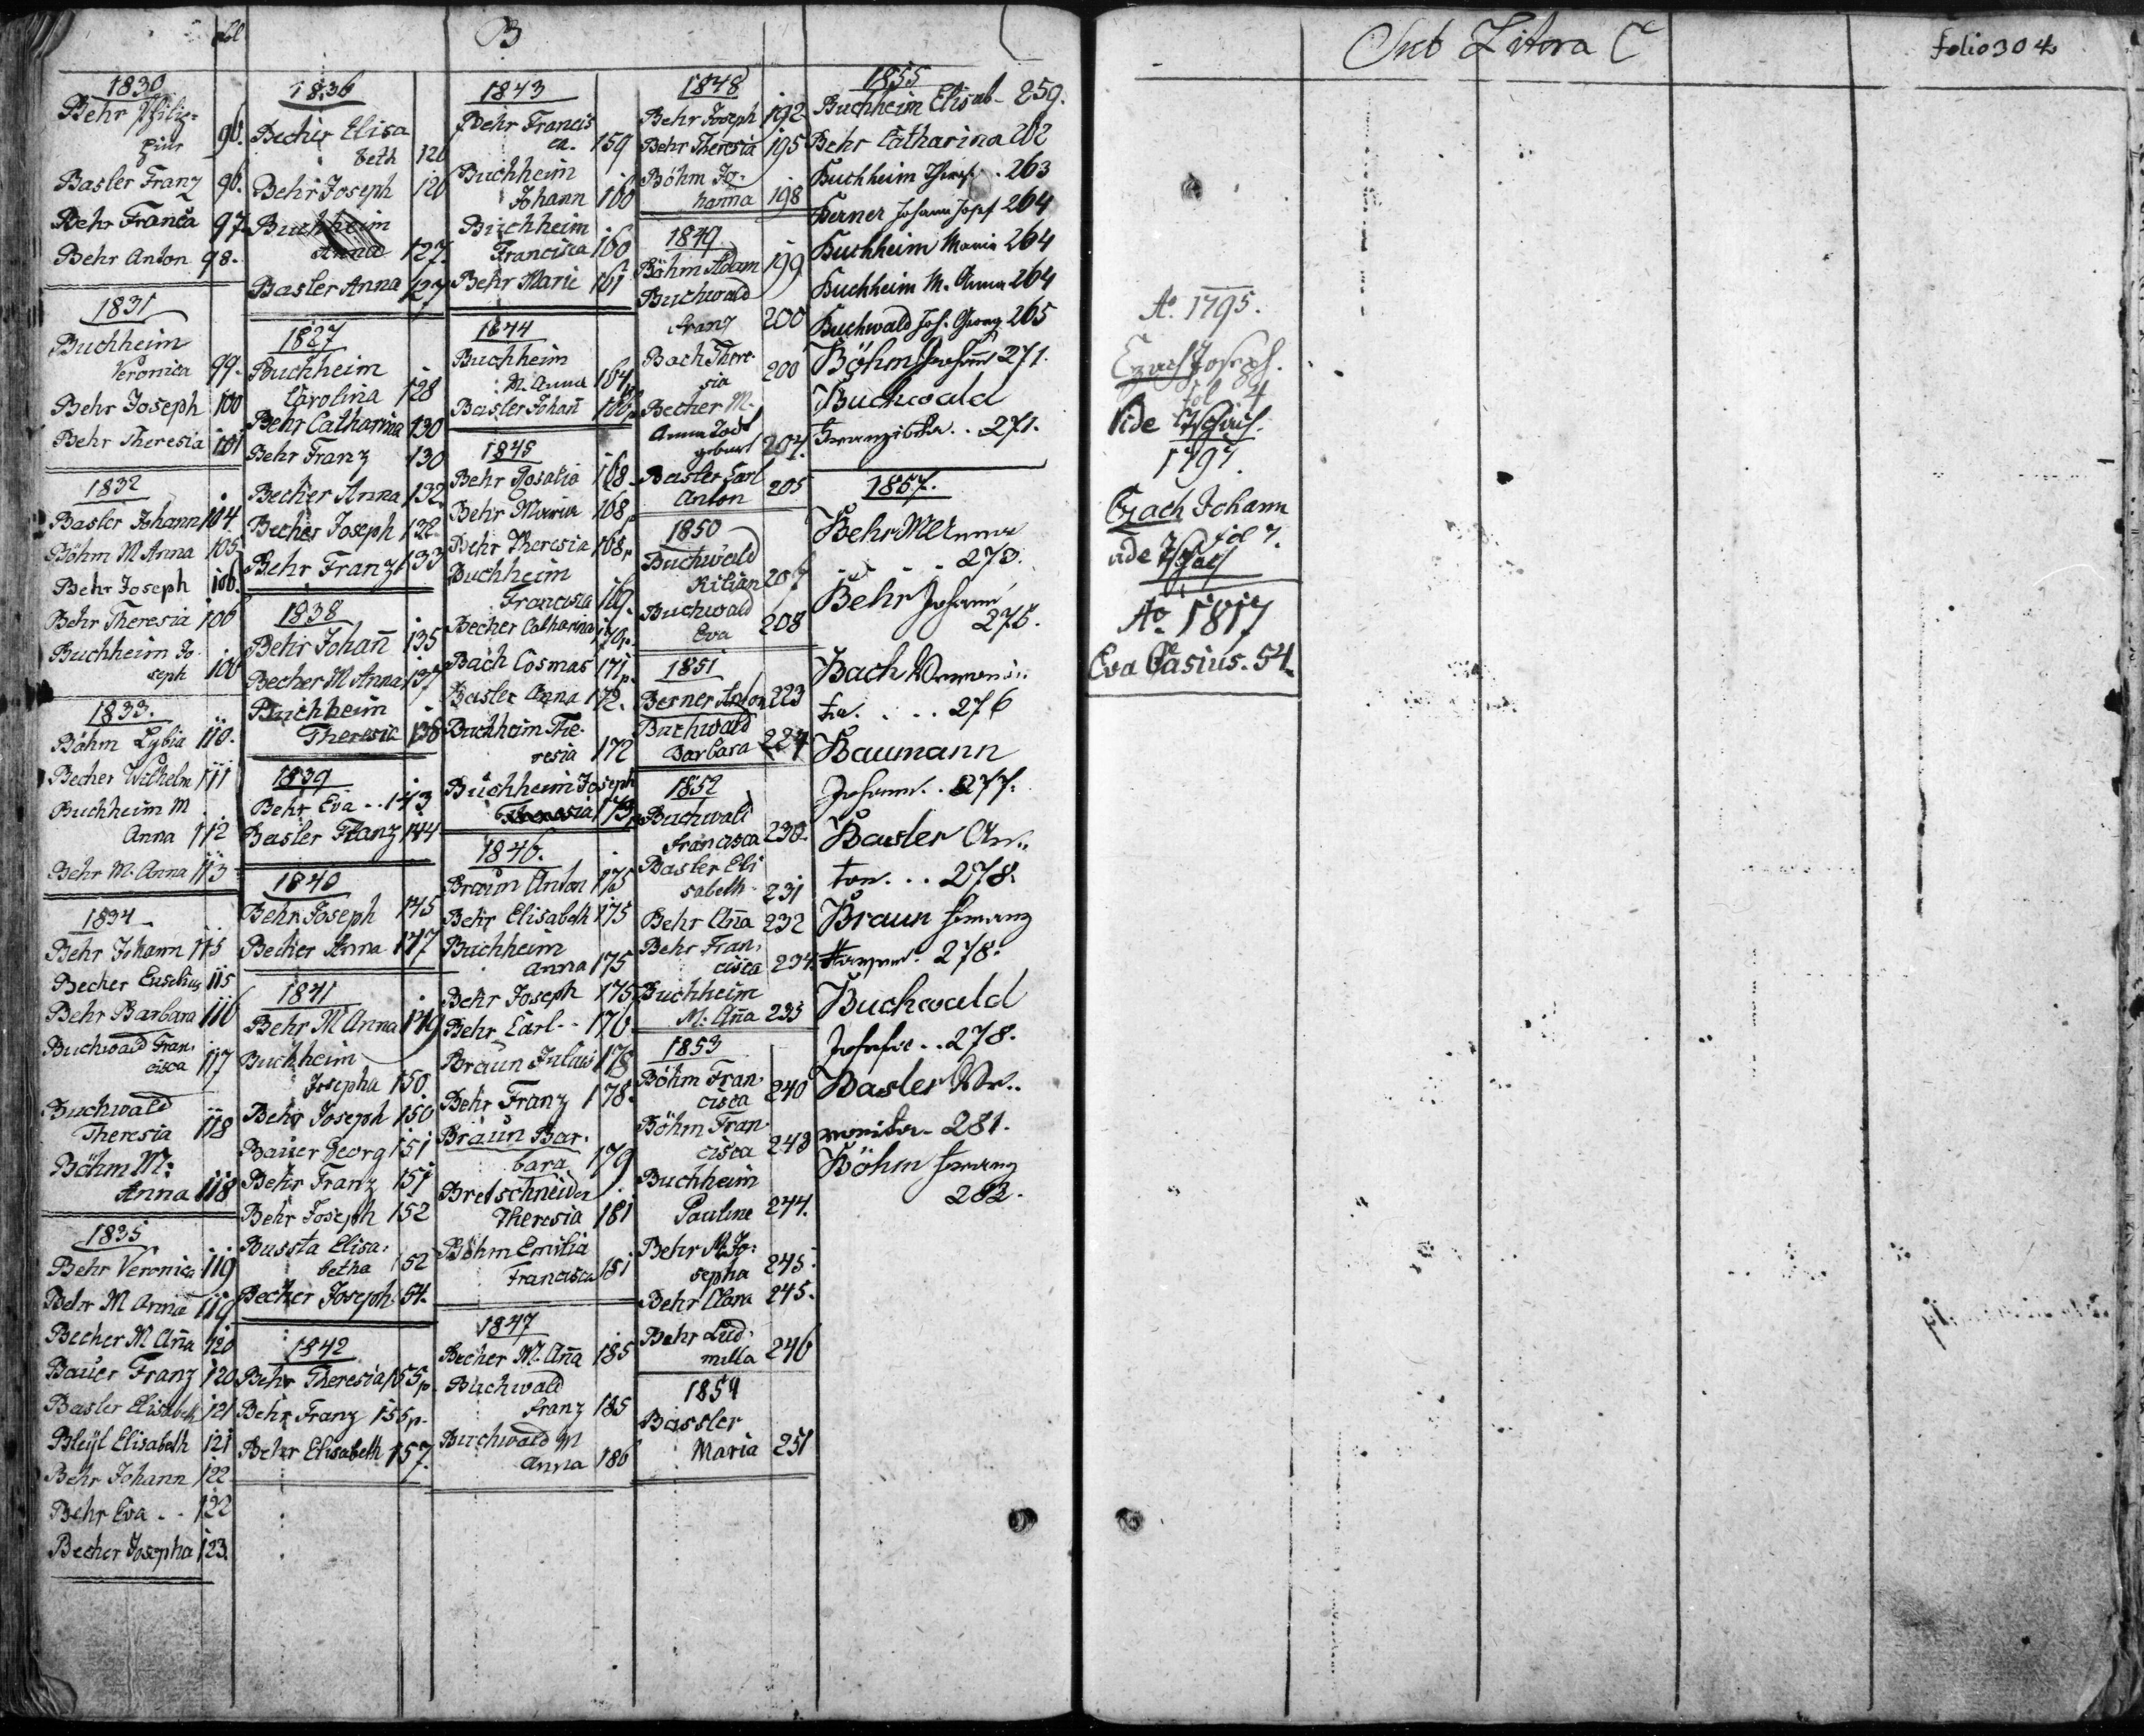 fol
B
1830
Behr Philip=
pina 96.
Basler Franz 96.
Behr Franca 97.
Behr Anton 98.
1831
Buchheim
Veronica 99.
Behr Joseph 100
Behr Theresia 101
1832
Basler Johann 104.
Böhm M Anna 105.
Behr Joseph 106.
Behr Theresia 106
Buchheim Jo
seph 106
1833.
Böhm Lybia 110.
Becher Wilhelm 111
Buchheim M
Anna 112
Behr M. Anna 113
1834
Behr Johann 115
Becher Eusebius 115
Behr Barbara 116
Buchwald Fran
cisca 117
Buchwald
Theresia 118
Böhm M:
Anna 118
1835
Behr Veronica 119
Behr M Anna 119
Becher M Aña 120
Bauer Franz 120
Basler Elisabeth 121
Bleÿl Elisabeth 121
Behr Johann 122
Behr Eva .. 122
Becher Josepha 123.
1836
Becher Elisa
beth 126
Behr Joseph 126
Buchheim
Anna 127.
Basler Anna 127
1827
Buchheim
Carolina 128
Behr Catharina 130
Behr Franz 130
Becher Anna 132
Becher Joseph 132
Behr Franz 133
1838
Behr Johañ 135
Becher M Anna 137
Buchheim
Theresia 138
1839
Behr Eva .. 143
Basler Franz 144
1840
Behr Joseph 145
Becher Anna 147
1841
Behr M Anna 149
Buchheim
Josepha 150
Behr Joseph 150
Bauer Georg 151
Behr Franz 151
Behr Joseph 152
Bussta Elisa=
betha 152
Becher Joseph 154.
1842
Behr Theresia 155p
Behr Franz 155p.
Behr Elisabeth 157.
1843
Behr Francis
ca. 159
Buchheim
Johann 160
Buchheim
Francisca 160
Behr Marie 161
1844
Buchheim
M. Anna 164p
Basler Johañ 166p
1845
Behr Rosalia 168
Behr Maria 168p
Behr Theresia 168p
Buchheim
Francisca 169.
Becher Catharina 170p.
Bach Cosmas 171p.
Basler Anna 172.
Buchheim The=
resia 172
Buchheim Joseph
Theresia 173p
1846.
Braun Anton 175
Behr Elisabeth 175
Buchheim
Anna 175
Behr Joseph 175
Behr Carl .. 176.
Braun Julius 178
Behr Franz 178.
Braun Bar.
bara 179
Bretschneider
Theresia 181
Böhm Emilia
Francisca 181
1847
Becher M. Aña 185
Buchwald
Franz 185
Buchwald M
Anna 186
1848
Behr Joseph 192
Behr Theresia 195
Böhm Jo=
hanna 198
1849
Böhm Adam 199
Buchwald
Franz 200
Bach There
sia 200
Becher M.
Anna Todt
geburt 204.
Basler Carl
Anton 205
1850
Buchwald
Kilian 207
Buchwald
Eva 208
1851
Berner Anton 223
Buchwald
Barbara 224
1852
Buchwald
Francisca 230.
Basler Eli
sabeth 231
Behr Aña 232
Behr Fran.
cisca 234
Buchheim
M. Aña 235
1853
Böhm Fran
cisca 240
Böhm Fran
cisca 243
Buchheim
Pauline 244.
Behr M Jo=
sepha 245.
Behr Clara 245.
Behr Lud=
milla 246
1854
Bassler
Maria 251
1855
Buchheim Elisab- 259.
Behr Catharina 262
Buchheim Theres. . 263
Berner Johann Josef 264
Buchheim Maria 264
Buchheim M. Anna 264
Buchwald Joh. Georg 265
Böhm Johañ 271.
Buchwald
Franziska .. 271.
1857.
Behr M Anna
. . . 273.
Behr Johann
275.
Bach
. . . . 276
Baumann
Johann. . 277.
Basler An..
ton ... 278.
Braun Franz
278.
Buchwald
Josefa .. 278.
Basler Ve..
ronika - 281.
Böhm Franz
282.
Sub Litera C
folio 304
Ao. 1795.
Czach Joseph.
fol 4
Vide Tschach.
1797.
Czach Johann
fol 7.
vide Tschach
Ao. 1817
Eva Casius. 54.